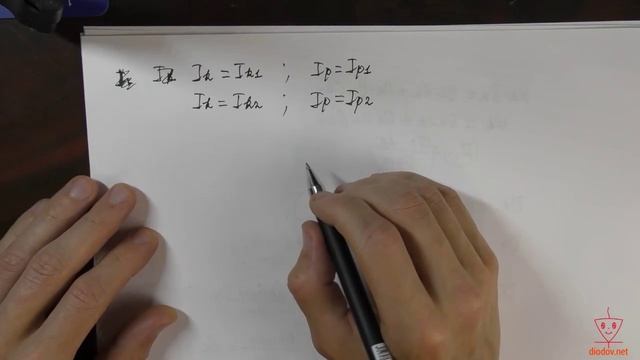 Iк = Iк1 ; Ip = Ip1
Iк = Iк2 ; Ip = Ip2
diodov.net